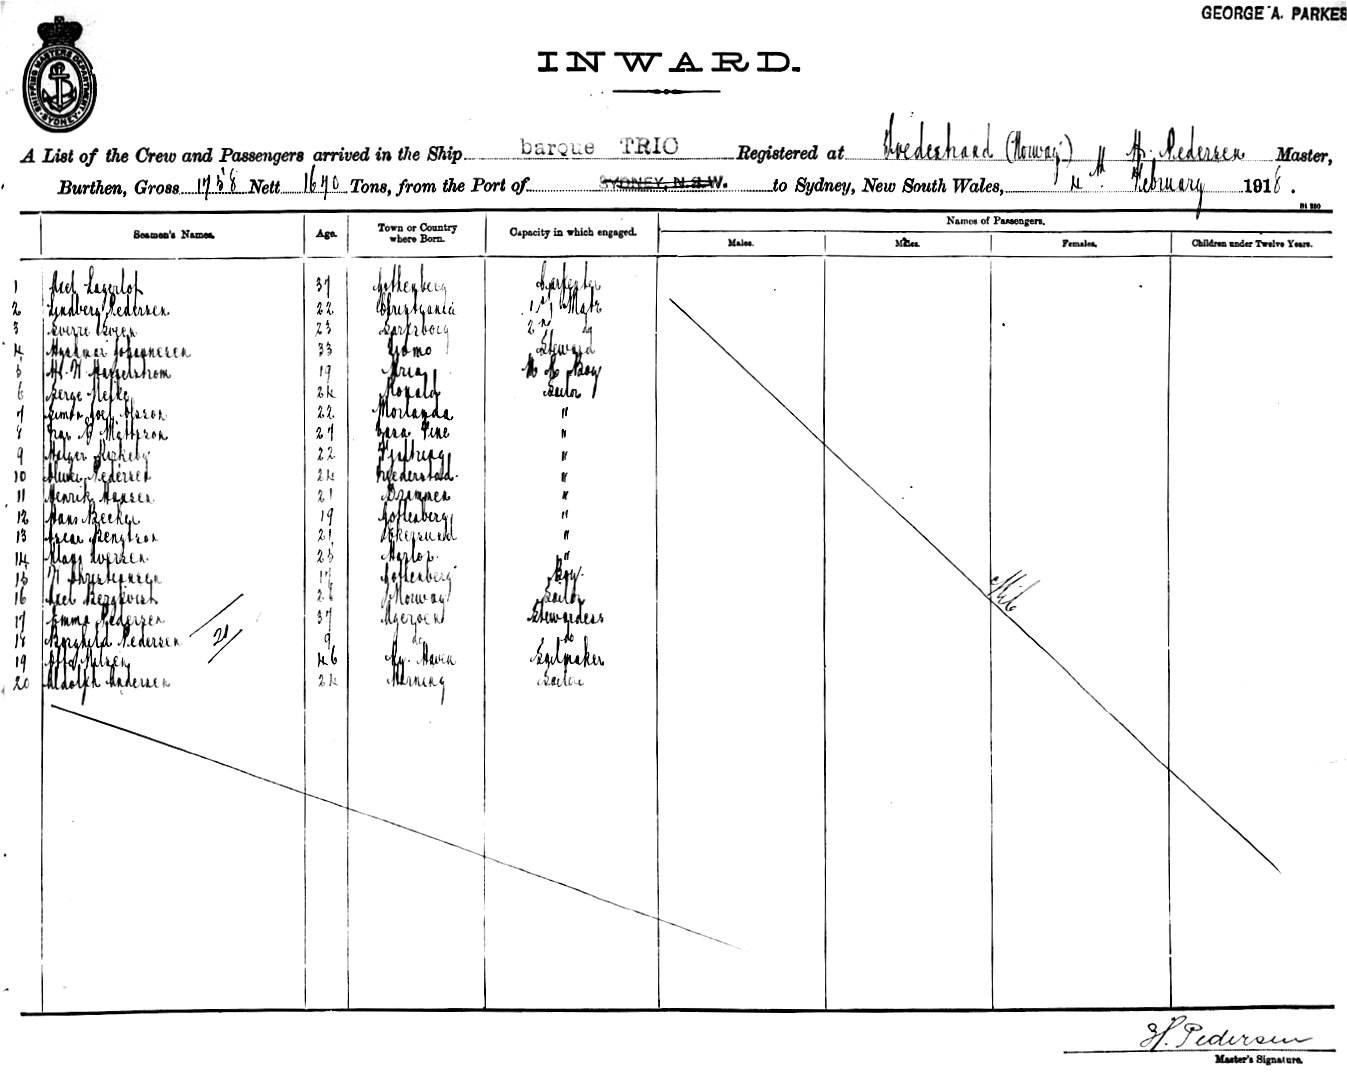 GEORGE A. PARKES
SHIPPING MASTERS DEPARTMENT
SYDNEY
INWARD.
A List of the Crew and Passengers arrived in the Ship barque TRIO Registered at (Norway) H. Pedersen Master,
Burthen, Gross 1758 Nett 1640 Tons, from the Port of SYDNEY, N.S.W. to Sydney, New South Wales, 4th February 1918.
Seamen's Names. Age. Town or Country where Born. Capacity in which engaged. Names of Passengers.
Males. Males. Females. Children under Twelve Years.
1 Axel Lagerlof 37 Gothenberg Carpenter
2 Lindberg Pedersen 22 Christiania 1st Mate
3 Sverre 23 Sarpsborg 2nd do
4 Hjalmar Johannesen 33 Tromo Steward
5 19 Boy
6 Berge 24 Sailor
7 Simon Olsson 22 Morlanda "
8 Mattsson 27 "
9 Holger Kirkeby 22 "
10 Pedersen 24 Frederstad "
11 Henrik Hansen 21 Drammen "
12 Hans Becker 19 Gottenberg "
13 Oscar Bengtson 21 "
14 Klaus Iversen 25 "
15 Christiansen 17 Gottenberg Boy
16 Axel Bergkvist Norway Sailor
17 Emma Pedersen 37 Stewardess
18 Borghild Pedersen 9 do do
19 Nilsen 46 Ny. Haven Sailmaker
20 Adolph Andersen 24 Sailor
H. Pedersen
Master's Signature.